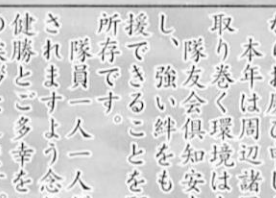 本年は周辺諸
取り巻く環境は
隊友会倶知安
し、強い絆をも
援できることを
所存です。
隊員一人一人
されますよう念
健勝とご多幸を